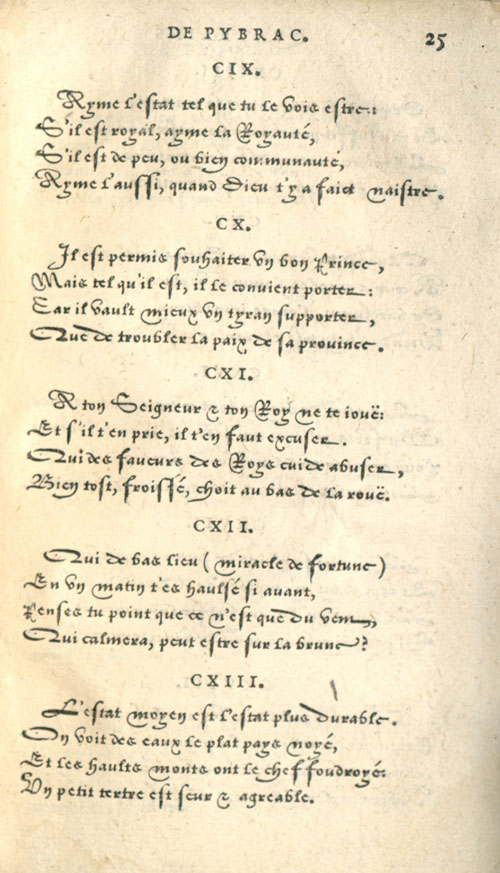 DE PYBRAC. 25
CIX.
Ayme l'estat tel que tu le vois estre:
S'il est royal, ayme la Royauté,
S'il est de peu, ou bien communauté,
Ayme l'aussi, quand Dieu t'y a faict naistre.
CX.
Il est permis souhaiter vn bon Prince,
Mais tel qu'il est, il le convient porter:
Car il vault mieux vn tyran supporter,
Que de troubler la paix de sa prouince.
CXI.
A ton Seigneur & ton Roy ne te iouë:
Et s'il t'en prie, il t'en faut excuser.
Qui des faueurs des Roys cuide abuser,
Bien tost, froissé, choit au bas de la rouë.
CXII.
Qui de bas lieu (miracle de fortune)
En vn matin t'es haulsé si auant,
Penses tu point que ce n'est que du vent,
Qui calmera, peut estre sur la brune?
CXIII.
L'estat moyen est l'estat plus durable.
On voit des eaux le plat pays noyé,
Et les haults monts ont le chef foudroyé:
Vn petit tertre est seur & agreable.